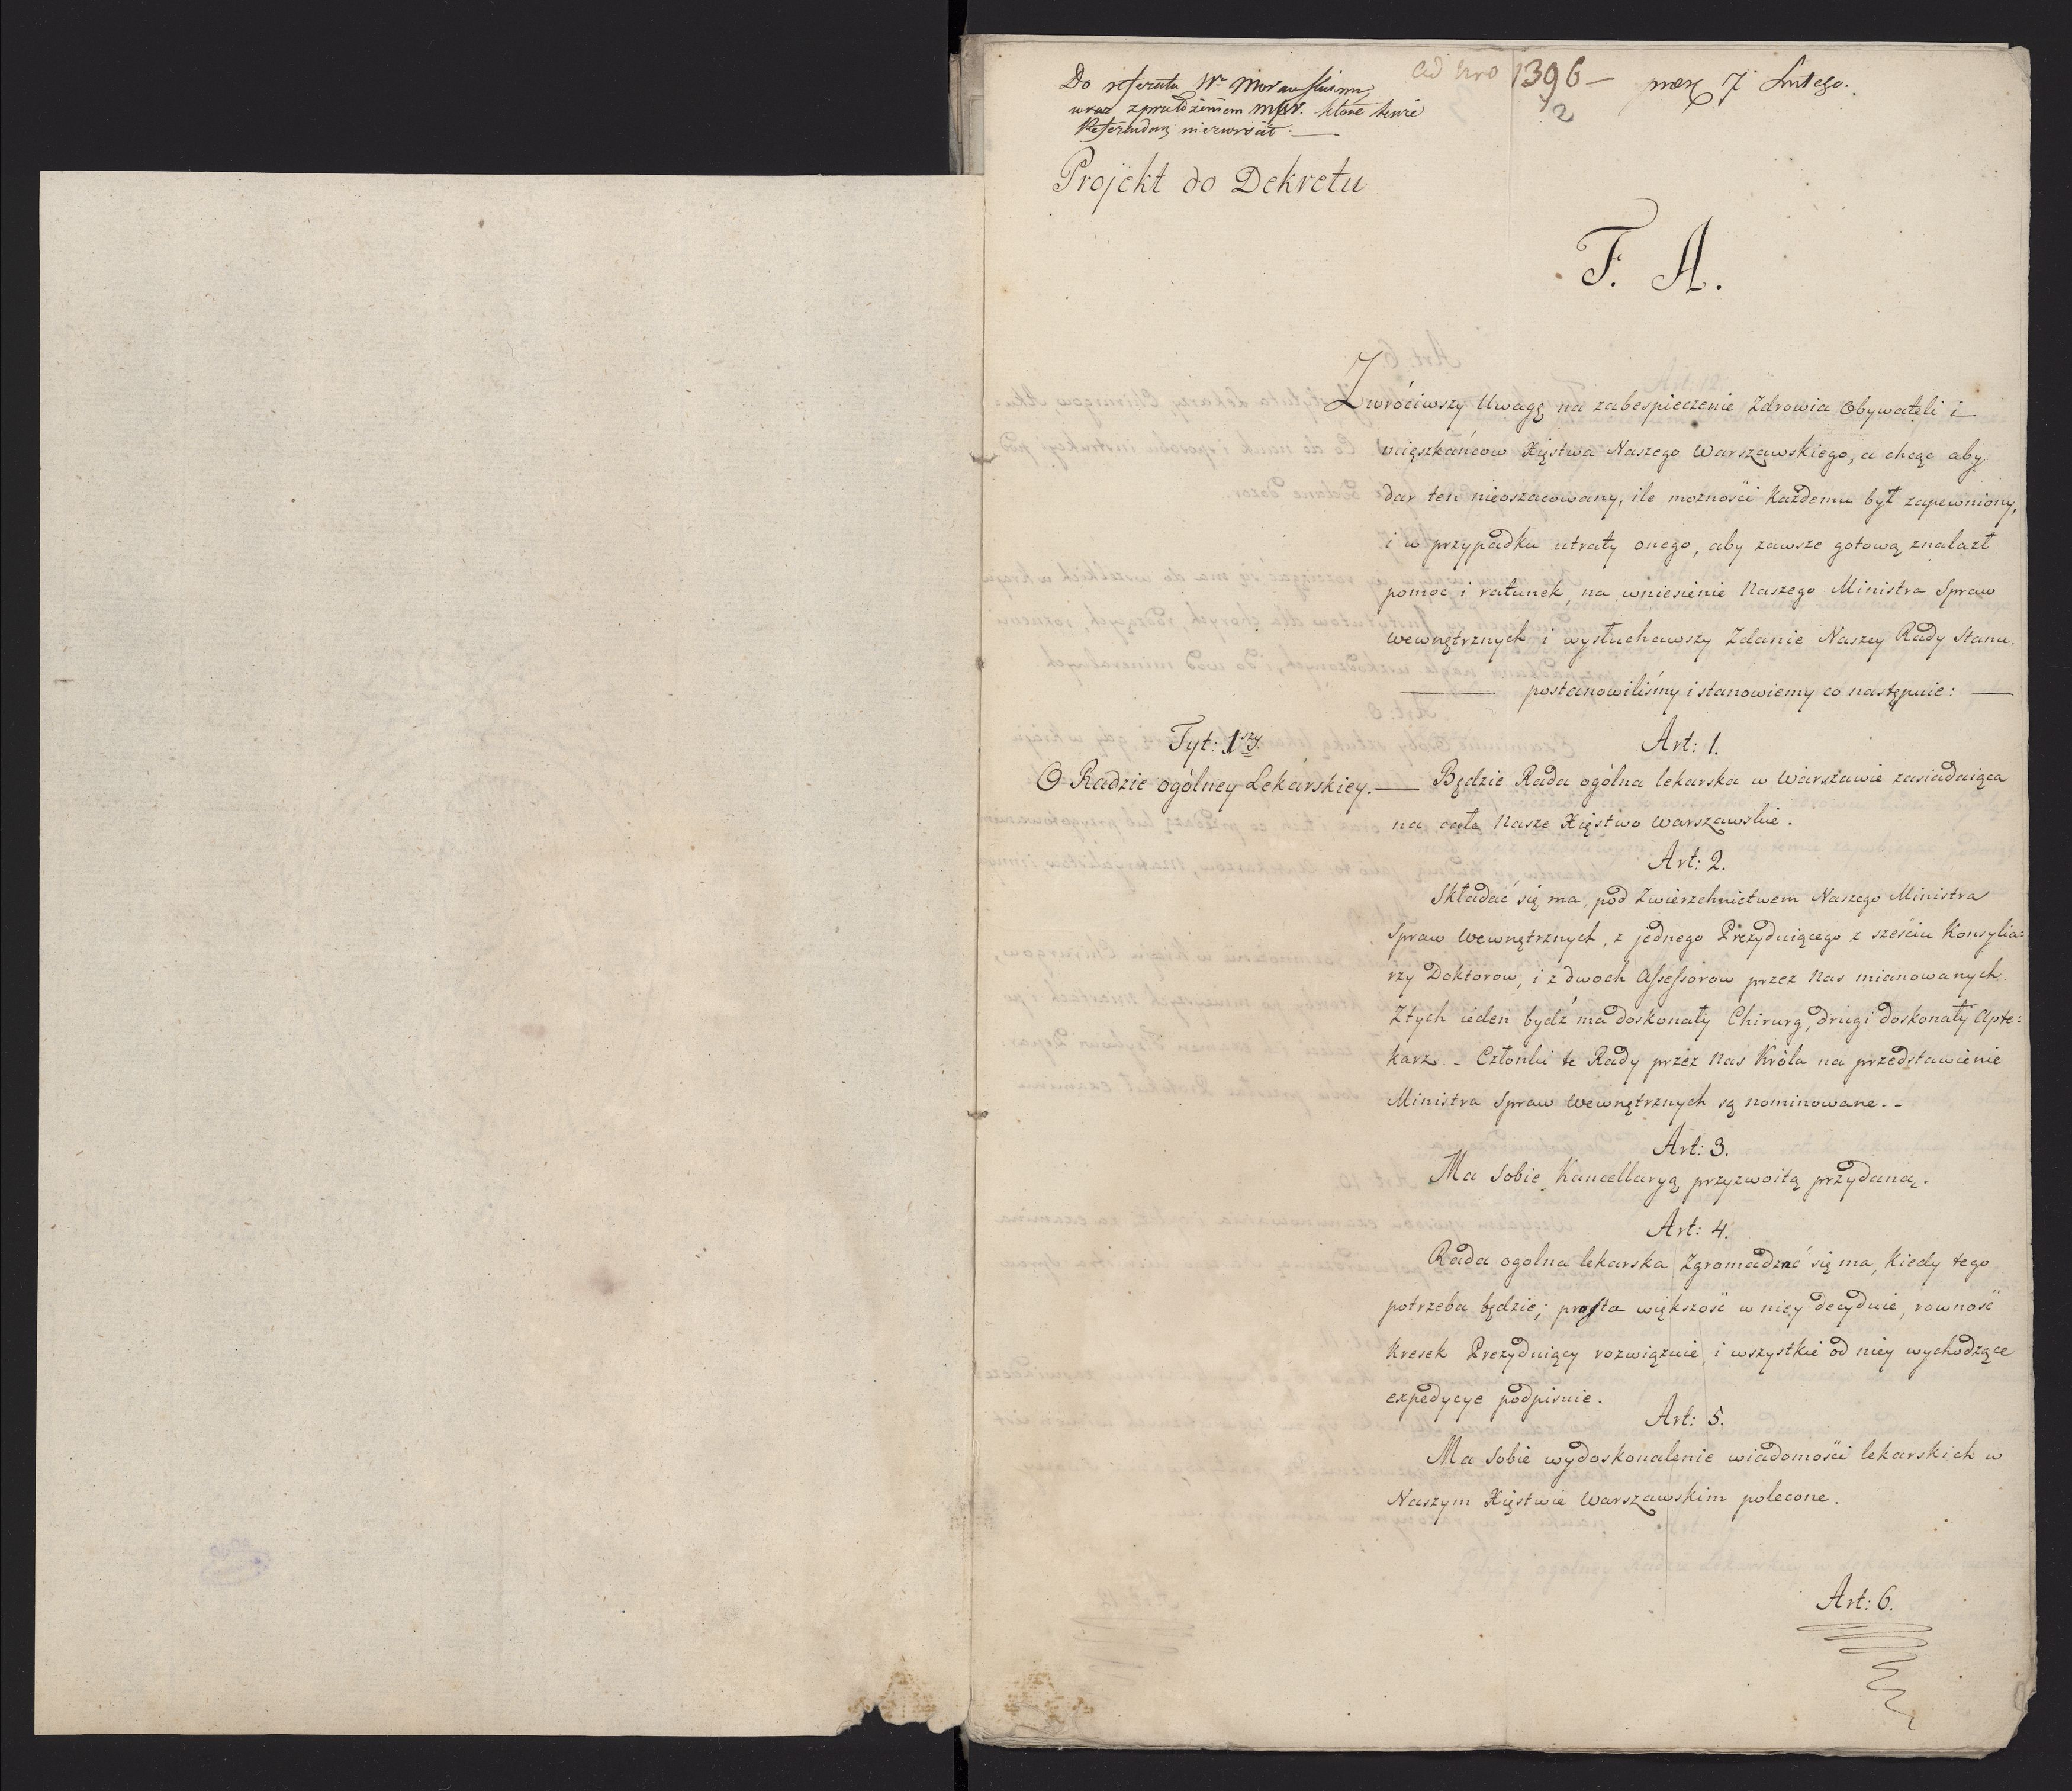 Do referatu Wo
ad Nro 1396 — præs 7 Lutego.
2
wraz
Projekt do Dekretu
F. A.
Zwróciwszy Uwagę na zabespieczenie Zdrowia Obywateli i
mięszkańcow Xięstwa Naszego Warszawskiego, a chcąc aby
dar ten nieoszacowany, ile możności każdemu był zapewniony,
i w przypadku utraty onego, aby zawsze gotową znalazł
pomoc i ratunek, na wniesienie Naszego Ministra Spraw
wewnętrznych i wysłuchawszy Zdanie Naszey Rady Stanu.
— postanowiliśmy i stanowiemy co następuie: —
Tyt: 1szy.
O Radzie ogólney Lekarskiey. —
Art: 1.
Będzie Rada ogólna lekarska w Warszawie zasiadaiąca
na całe Nasze Xięstwo Warszawskie.
Art: 2.
Składać się ma, pod Zwierzchnictwem Naszego Ministra
Spraw Wewnętrznych, z jednego Prezyduiącego z sześciu Konsylia:
rzy Doktorow, i z dwoch Assessorow przez Nas mianowanych.
Z tych ieden bydź ma doskonały Chirurg, drugi doskonały Apte:
karz. - Członki te Rady przez Nas Króla na przedstawienie
Ministra Spraw Wewnętrznych są nominowane. -
Art: 3.
Ma Sobie Kancellaryą przyzwoitą przydaną.
Art: 4.
Rada ogolna lekarska Zgromadzać się ma, kiedy tego
potrzeba będzie; prosta większość w niey decyduie, rowność
kresek Prezyduiący rozwiązuie, i wszystkie od niey wychodzące
expedycye podpisuie.
Art: 5.
Ma Sobie wydoskonalenie wiadomości lekarskich w
Naszym Xięstwie Warszawskim polecone.
Art: 6.